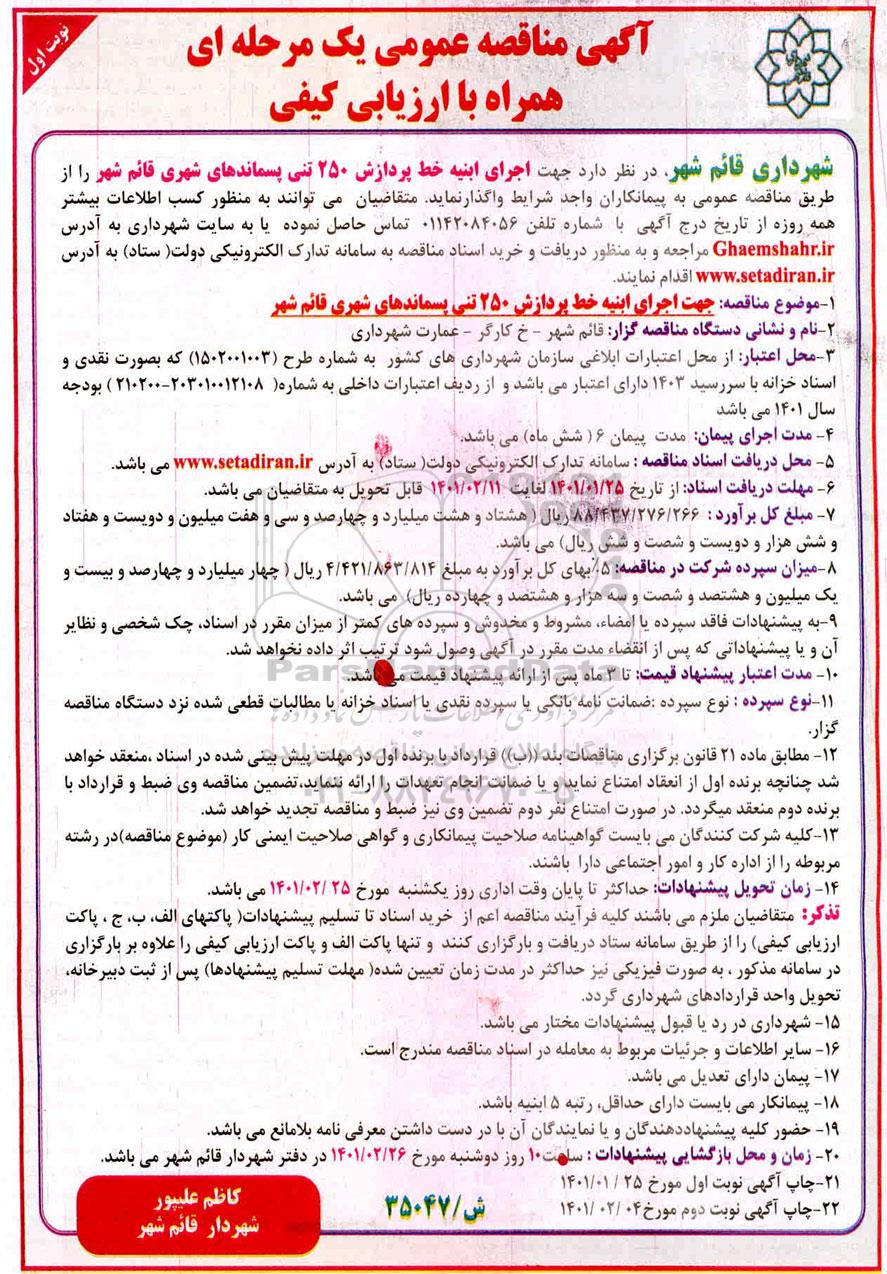 نوبت اول
آگهی مناقصه عمومی یک مرحله ای
همراه با ارزیابی کیفی
شهرداری قائم شهر، در نظر دارد جهت اجرای ابنیه خط پردازش ۲۵۰ تنی پسماندهای شهری قائم شهر را از
طریق مناقصه عمومی به پیمانکاران واجد شرایط واگذارنماید. متقاضیان می توانند به منظور کسب اطلاعات بیشتر
همه روزه از تاریخ درج آگهی با شماره تلفن ۰۱۱۴۲۰۸۴۰۵۶ تماس حاصل نموده یا به سایت شهرداری به آدرس
Ghaemshahr.ir مراجعه و به منظور دریافت و خرید اسناد مناقصه به سامانه تدارک الکترونیکی دولت( ستاد) به آدرس
www.setadiran.ir اقدام نمایند.
۱-موضوع مناقصه: جهت اجرای ابنیه خط پردازش ۲۵۰ تنی پسماندهای شهری قائم شهر
۲-نام و نشانی دستگاه مناقصه گزار: قائم شهر - خ کارگر - عمارت شهرداری
۳-محل اعتبار: از محل اعتبارات ابلاغی سازمان شهرداری های کشور به شماره طرح (۱۵۰۲۰۰۱۰۰۳) که بصورت نقدی و
اسناد خزانه با سررسید ۱۴۰۳ دارای اعتبار می باشد و از ردیف اعتبارات داخلی به شماره( ۲۰۳۰۱۰۰۱۲۱۰۸-۲۱۰۲۰۰ ) بودجه
سال ۱۴۰۱ می باشد
۴- مدت اجرای پیمان: مدت پیمان ۶ ( شش ماه) می باشد.
۵- محل دریافت اسناد مناقصه : سامانه تدارک الکترونیکی دولت( ستاد) به آدرس www.setadiran.ir می باشد.
۶- مهلت دریافت اسناد: از تاریخ ۱۴۰۱/۰۱/۲۵ لغایت ۱۴۰۱/۰۲/۱۱ قابل تحویل به متقاضیان می باشد.
۷- مبلغ کل برآورد : ۸۸/۴۳۷/۲۷۶/۲۶۶ ریال ( هشتاد و هشت میلیارد و چهارصد و سی و هفت میلیون و دویست و هفتاد
و شش هزار و دویست و شصت و شش ریال) می باشد.
۸-میزان سپرده شرکت در مناقصه: ۵٪ بهای کل برآورد به مبلغ ۴/۴۲۱/۸۶۳/۸۱۴ ریال ( چهار میلیارد و چهارصد و بیست و
یک میلیون و هشتصد و شصت و سه هزار و هشتصد و چهارده ریال) می باشد.
۹-به پیشنهادات فاقد سپرده یا امضاء، مشروط و مخدوش و سپرده های کمتر از میزان مقرر در اسناد، چک شخصی و نظایر
آن و یا پیشنهاداتی که پس از انقضاء مدت مقرر در آگهی وصول شود ترتیب اثر داده نخواهد شد.
ParsNamadData
۱۰- مدت اعتبار پیشنهاد قیمت: تا ۳ ماه پس از ارائه پیشنهاد قیمت می باشد.
۱۱-نوع سپرده : نوع سپرده :ضمانت نامه بانکی یا سپرده نقدی یا اسناد خزانه یا مطالبات قطعی شده نزد دستگاه مناقصه
گزار.
۱۲- مطابق ماده ۲۱ قانون برگزاری مناقصات بند ((ب)) قرارداد با برنده اول در مهلت پیش بینی شده در اسناد ،منعقد خواهد
شد چنانچه برنده اول از انعقاد امتناع نماید و یا ضمانت انجام تعهدات را ارائه ننماید،تضمین مناقصه وی ضبط و قرارداد با
برنده دوم منعقد میگردد. در صورت امتناع نفر دوم تضمین وی نیز ضبط و مناقصه تجدید خواهد شد.
۱۳-کلیه شرکت کنندگان می بایست گواهینامه صلاحیت پیمانکاری و گواهی صلاحیت ایمنی کار (موضوع مناقصه)در رشته
مربوطه را از اداره کار و امور اجتماعی دارا باشند.
۱۴- زمان تحویل پیشنهادات: حداکثر تا پایان وقت اداری روز یکشنبه مورخ ۲۵ /۱۴۰۱/۰۲ می باشد.
تذکر: متقاضیان ملزم می باشند کلیه فرآیند مناقصه اعم از خرید اسناد تا تسلیم پیشنهادات( پاکتهای الف، ب، ج ، پاکت
ارزیابی کیفی) را از طریق سامانه ستاد دریافت و بارگزاری کنند و تنها پاکت الف و پاکت ارزیابی کیفی را علاوه بر بارگزاری
در سامانه مذکور ، به صورت فیزیکی نیز حداکثر در مدت زمان تعیین شده( مهلت تسلیم پیشنهادها) پس از ثبت دبیرخانه،
تحویل واحد قراردادهای شهرداری گردد.
۱۵- شهرداری در رد یا قبول پیشنهادات مختار می باشد.
۱۶- سایر اطلاعات و جزئیات مربوط به معامله در اسناد مناقصه مندرج است.
۱۷- پیمان دارای تعدیل می باشد.
۱۸- پیمانکار می بایست دارای حداقل، رتبه ۵ ابنیه باشد.
۱۹- حضور کلیه پیشنهاددهندگان و یا نمایندگان آن با در دست داشتن معرفی نامه بلامانع می باشد.
۲۰- زمان و محل بازگشایی پیشنهادات : ساعت۱۰ روز دوشنبه مورخ ۱۴۰۱/۰۲/۲۶ در دفتر شهردار قائم شهر می باشد.
۲۱-چاپ آگهی نوبت اول مورخ ۲۵ /۱۴۰۱/۰۱
۲۲-چاپ آگهی نوبت دوم مورخ۰۴ /۰۲ /۱۴۰۱
ش/۳۵۰۴۷
کاظم علیپور
شهردار قائم شهر